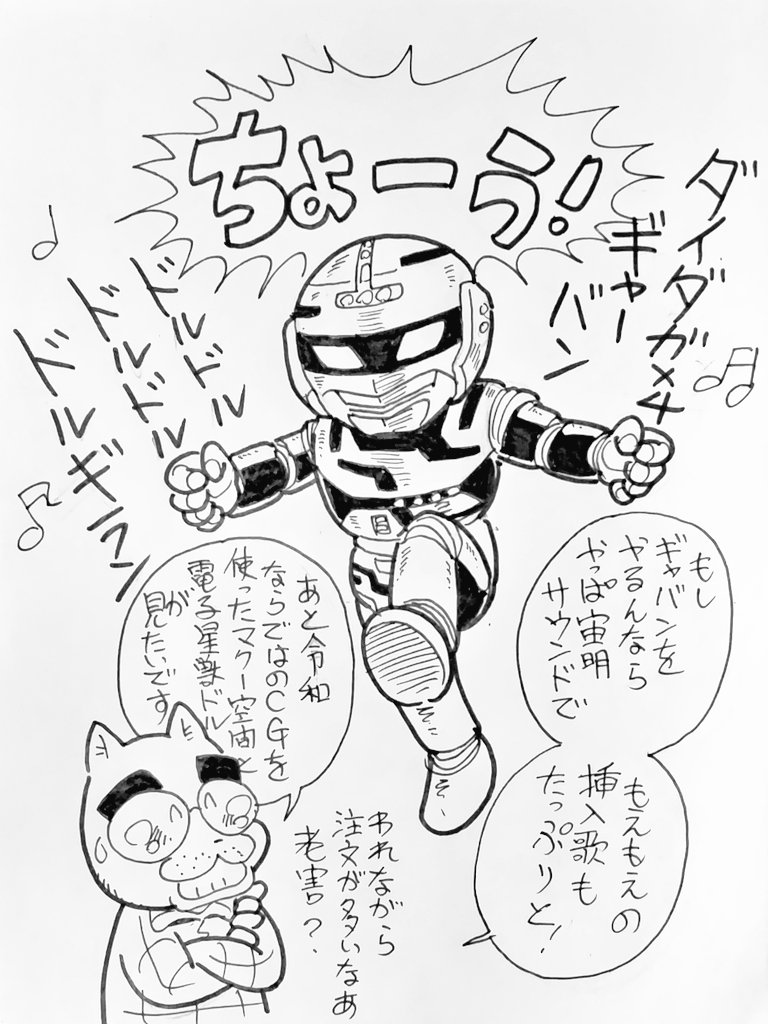 ちょーう!
ダイダガ×4
ギャー
バン
ドルドル
ドルドル
ドルギラン
もし
ギャバンを
やるんなら
やっぱ宙明
サウンドで
もえもえの
挿入歌も
たっぷりと!
あと令和
ならではのCGを
使ったマクー空間と
電子星獣ドル
が
見たいです
われながら
注文が多いなあ
老害?